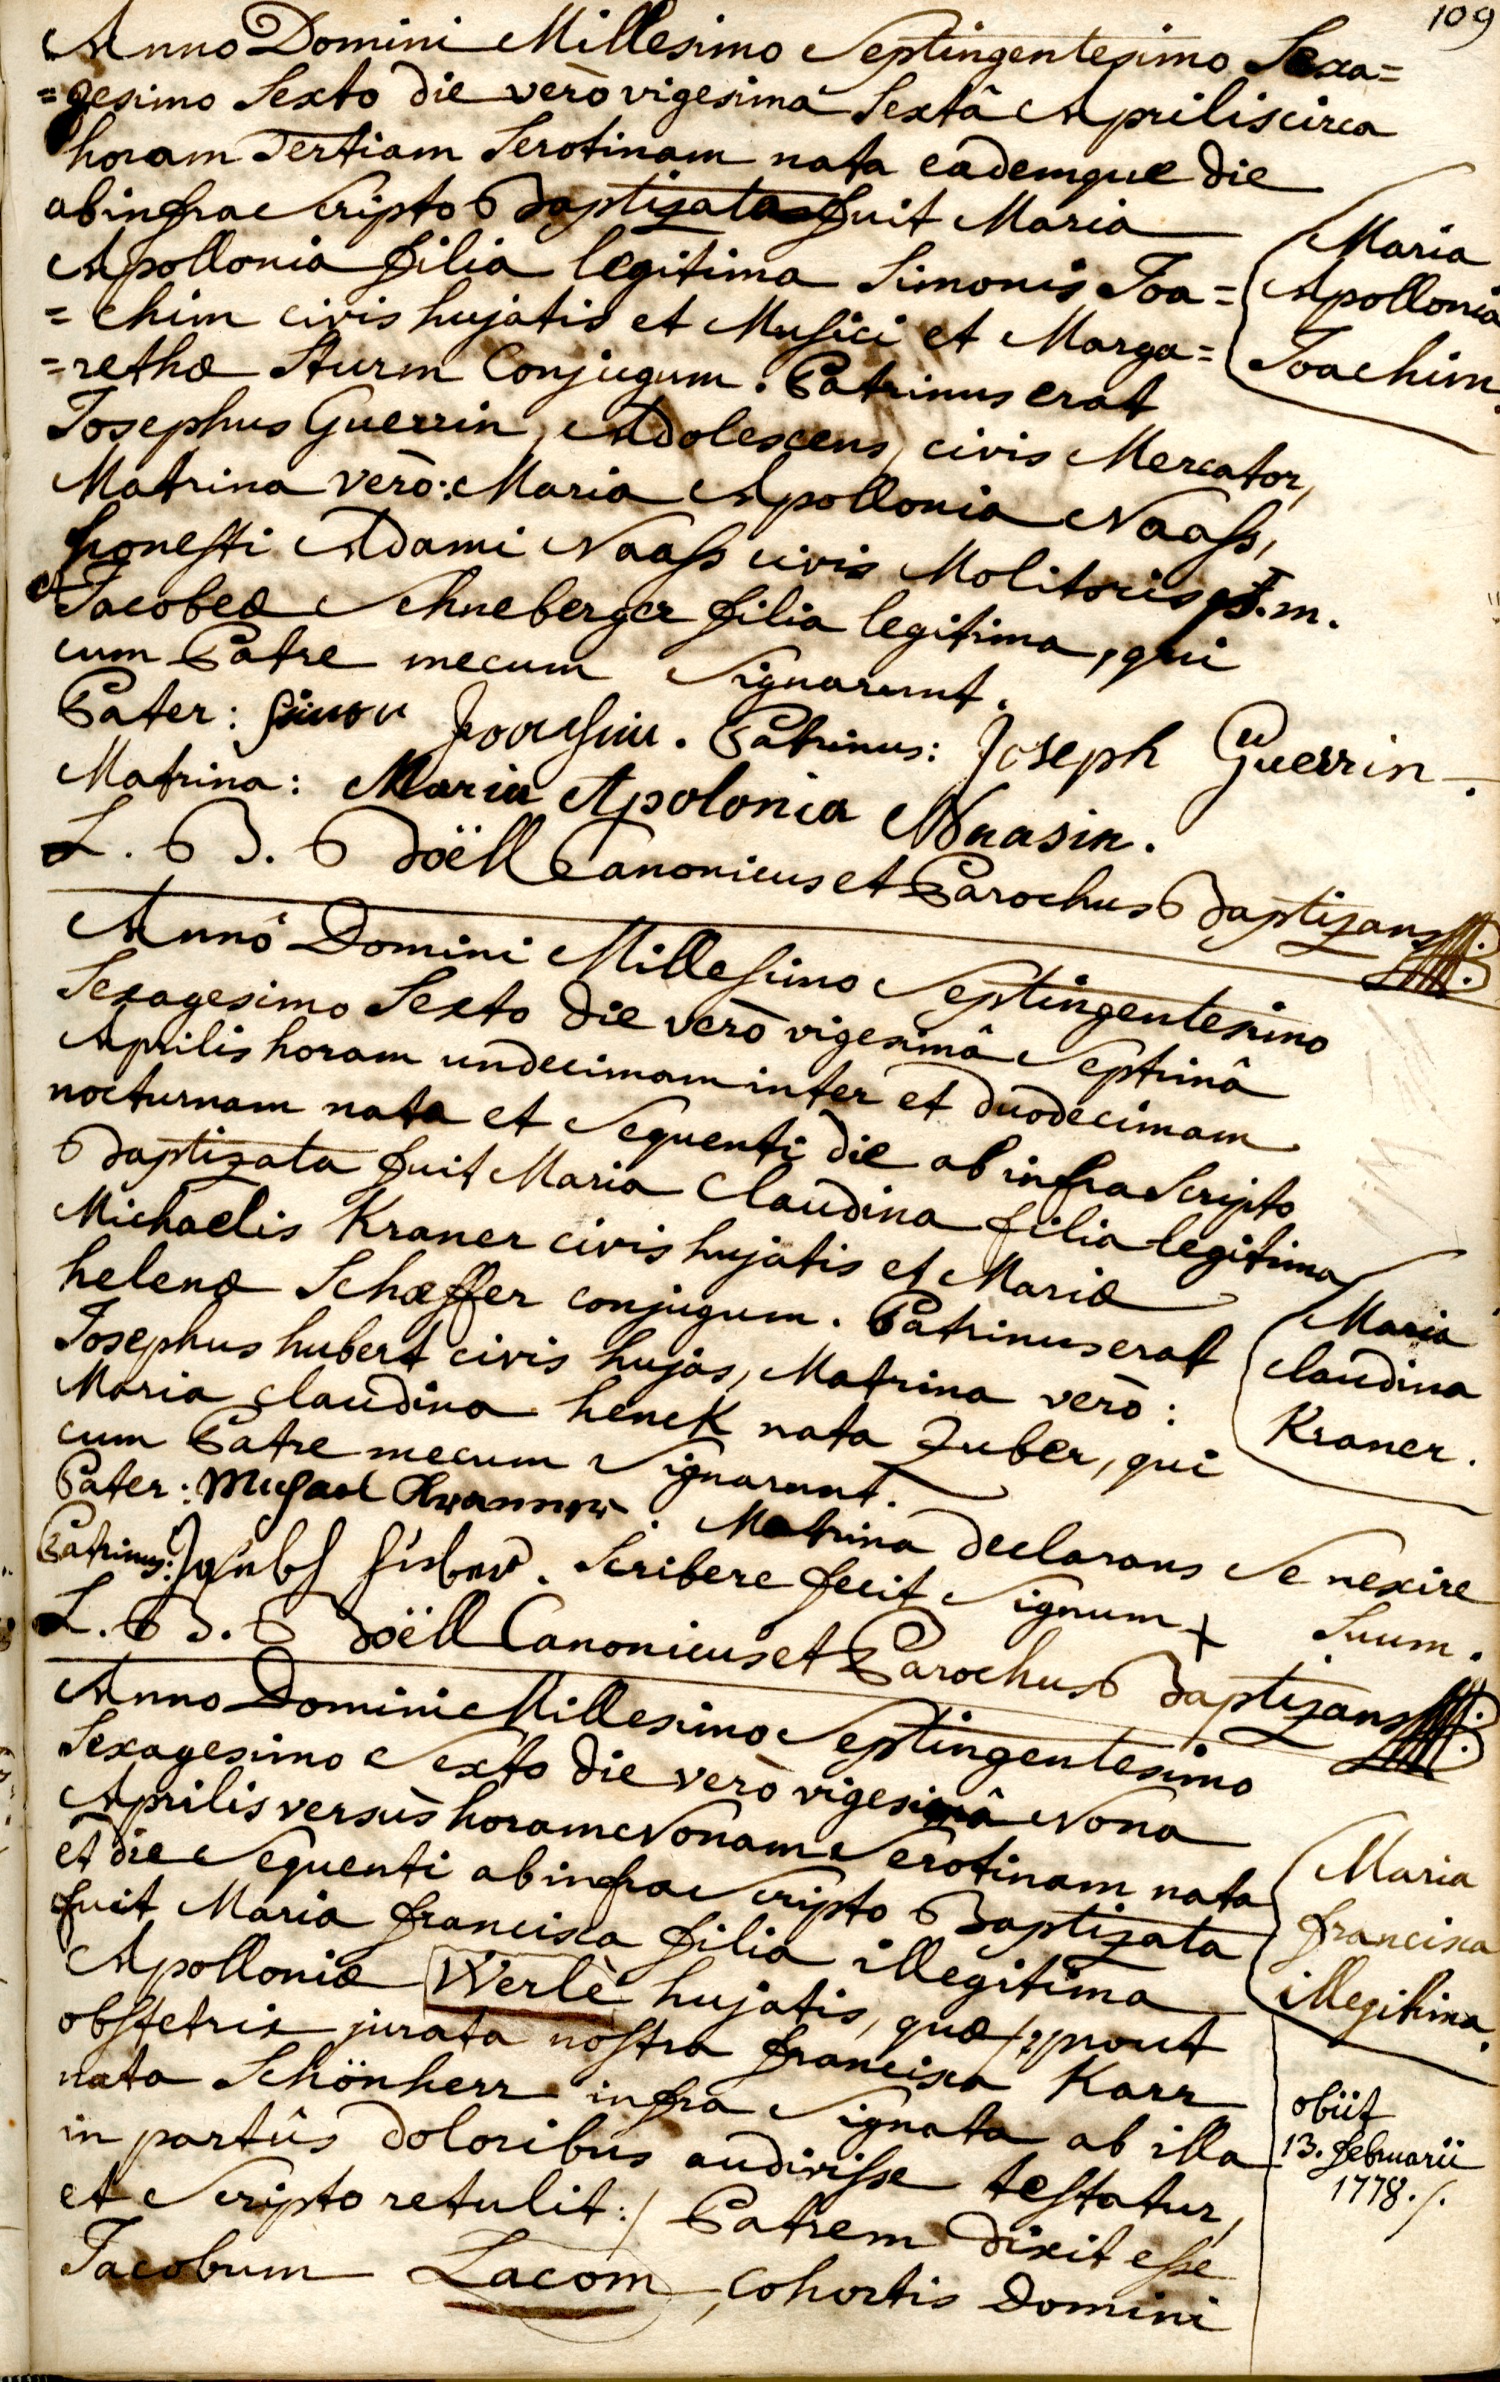 109
Anno Domini Millesimo Septingentesimo Sexa=
=gesimo Sexto die verò vigesimâ Sextâ Aprilis circa
horam Tertiam Serotinam nata eademque die
ab infra Scripto Baptizata fuit Maria
Apollonia filia legitima Simonis Joa=
=chim civis hujatis et Musici et Marga=
=rethæ Sturm Conjugum. Patrinus erat
Josephus Guerrin, Adolescens, civis Mercator,
Matrina verò: Maria Apollonia Naass,
honesti Adami Naass civis Molitoris p.m.
et Jacobeæ Schneberger filia legitima, qui
cum Patre mecum Signarunt.
Pater: Simon Joachim. Patrinus: Joseph Guerrin.
Matrina: Maria Apolonia Naasin.
L. B. Boëll Canonicus et Parochus Baptizans
Maria
Apollonia
Joachim.
Annô Domini Millesimo Septingentesimo
Sexagesimo Sexto die verò vigesimâ Septimâ
Aprilis horam undecimam inter et duodecimam
nocturnam nata et Sequenti die ab infra Scripto
Baptizata fuit Maria Claudina filia legitima
Michaelis Kraner civis hujatis et Mariæ
helenæ Schæffer conjugum. Patrinus erat
Josephus hubert civis hujas, Matrina verò:
Maria claudina henck nata Zuber, qui
cum Patre mecum Signarunt.
Pater: Michael Kranner. Matrina declarans Se nexire
Patrinus: Joseph huber. Scribere fecit Signum + Suum.
L. B. Boëll Canonicus et Parochus Baptizans
Maria
claudina
Kraner.
Anno Domini Millesimo Septingentesimo
Sexagesimo Sexto die verò vigesimâ Nona
Aprilis versùs horam Nonam Serotinam nata
et die Sequenti ab infra Scripto Baptizata
fuit Maria francisca filia illegitima
Apolloniæ Werlè hujatis, quæ /: prout
obstetrix jurata nostra francisca Karr
nata Schönherr infra Signata ab illa
in partûs doloribus audivisse testatur,
et Scripto retulit :/ Patrem dixit esse
Jacobum Lacom, Cohortis Domini
Maria
francisca
illegitima.
obiit
13. februarii
1778./.